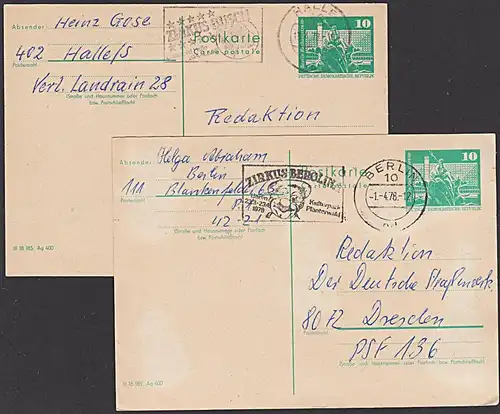 Absender: Heinz Gose
402 Halle/S
Postleitzahl
Verl. Landrain 28
(Straße und Hausnummer oder Postfach
bzw. Postschließfach)
ZIRKUS BUSCH
HALLE
Postkarte
Carte postale
10
DEUTSCHE DEMOKRATISCHE REPUBLIK
Redaktion
III 18 185 Ag 400
Absender: Helga Abraham
Berlin
111 Blankenfelde, 68
Postleitzahl
42-21
(Straße und Hausnummer oder Postfach
bzw. Postschließfach)
ZIRKUS BEROLINA
Kulturpark
Plänterwald
1978
BERLIN
10
-1.-4.78.-17
10
Redaktion
Der Deutsche Straßenverk.
8072 Dresden
Postleitzahl
PSF 136
(Straße und Hausnummer oder Postfach
bzw. Postschließfach)
III 18 185 Ag 400